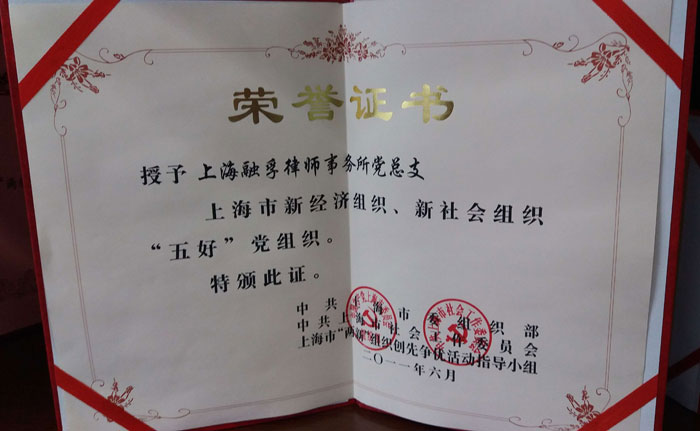 荣誉证书
授予 上海融孚律师事务所党总支
上海市新经济组织、新社会组织
“五好”党组织。
特颁此证。
中共上海市委组织部
中共上海市社会工作委员会
上海市“两新”组织创先争优活动指导小组
二〇一一年六月